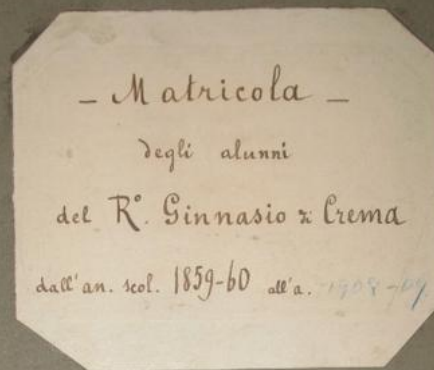 – Matricola –
degli alunni
del R.° Ginnasio di Crema
dall'an. scol. 1859-60 all'a. 1908-09